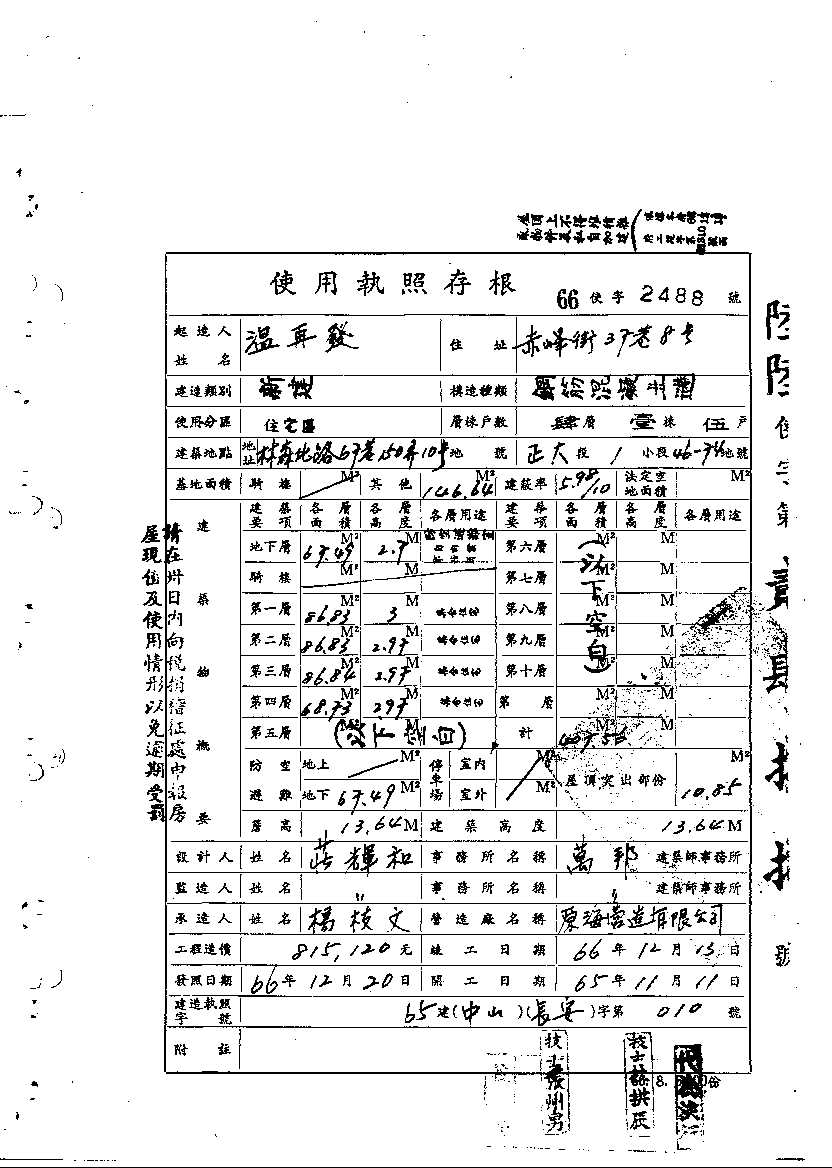 使用執照存根
66 使字 2488 號
起造人姓名 溫再發 住址 赤峰街37巷8号
建造類別 構造種類
使用分區 住宅區 層棟戶數 肆層 壹棟 伍戶
建築地點 地址 林森北路67巷150弄10号 地號 正大段 1 小段 46-74地號
基地面積 騎樓 M² 其他 146.64 M² 建蔽率 5.98/10 法定空地面積 M²
建築要項 各層面積 各層高度 各層用途 建築要項 各層面積 各層高度 各層用途
地下層 67.49 M² 2.7 M 第六層 M² M
騎樓 M² M 第七層 M² M
第一層 86.83 M² 3 M 第八層 M² M
第二層 86.83 M² 2.97 M 第九層 M² M
第三層 86.84 M² 2.97 M 第十層 M² M
第四層 68.73 M² 2.97 M 第 層 M² M
第五層 M² M 計
(以下空白)
建築物概要
防空避難 地上 M² 停車場 室內 M² 屋頂突出部份 10.85 M²
地下 67.49 M² 室外 M²
簷高 13.64 M 建築高度 13.64 M
設計人 姓名 莊輝和 事務所名稱 萬邦 建築師事務所
監造人 姓名 〃 事務所名稱 〃 建築師事務所
承造人 姓名 楊枝文 營造廠名稱 東海營造有限公司
工程造價 815,120元 竣工日期 66年12月13日
發照日期 66年12月20日 開工日期 65年11月11日
建造執照字號 65建(中山)(長安)字第 010 號
附註
請在卅日內向稅捐稽征處申報房
屋現值及使用情形以免逾期受罰
技士張州男
代為決
號